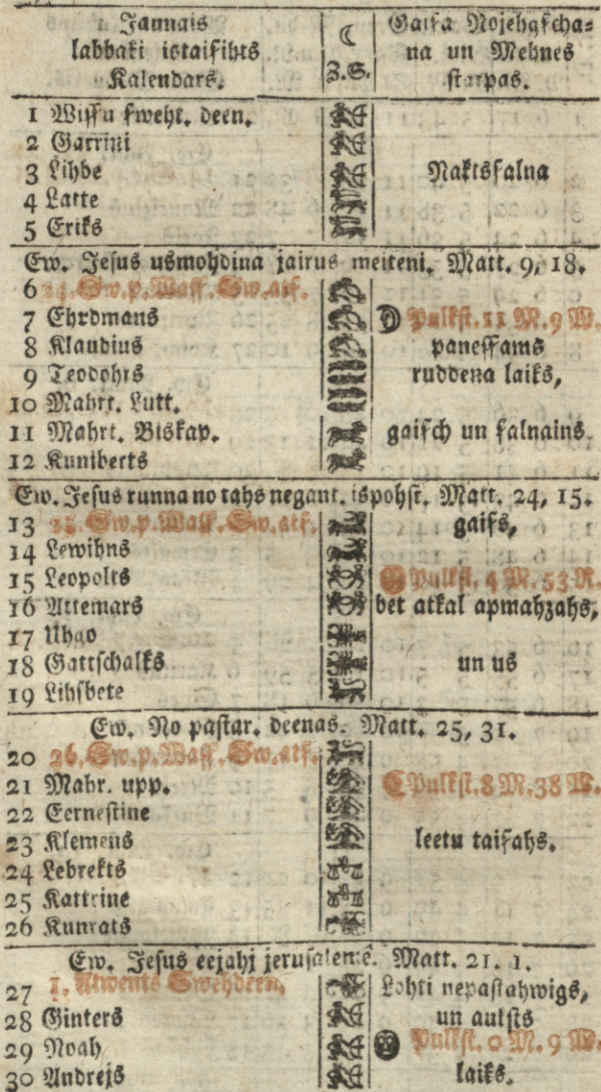 Jaunais
labbaki istaisihts
Kalendars.
☾
Z. S.
Gaisa Nojehgscha-
na un Mehnes
starpas.
1 Wissu sweht. deen.
2 Garrini
3 Lihbe Naktssalna
4 Latte
5 Eriks
Ew. Jesus usmohdina jairus meiteni. Matt. 9, 18.
6 24. Sw. p. Wass. Sw. atf.
7 Ehrdmans Pulkst. 11 M. 9 W.
8 Klaudius panessams
9 Teodohrs ruddena laiks,
10 Mahrt. Lutt.
11 Mahrt. Biskap. gaisch un salnains
12 Kuniberts
Ew. Jesus runna no tahs negant. ispohst. Matt. 24, 15.
13 25. Sw. p. Wass. Sw. atf. gaiss,
14 Lewihns
15 Leopolts Pulkst. 4 P. 53 R.
16 Attemars bet atkal apmahzahs,
17 Uhgo
18 Gattschalks un us
19 Lihsbete
Ew. No pastar. deenas. Matt. 25, 31.
20 26. Sw. p. Wass. Sw. atf.
21 Mahr. upp. ☾ Pulkst. 8 M. 38 W.
22 Eernestine
23 Klemens leetu taisahs.
24 Lebrekts
25 Kattrine
26 Kunrats
Ew. Jesus eejahj jerusalemê. Matt. 21. 1.
27 1. Atwents Swehdeen. Lohti nepastahwigs,
28 Ginters un aulsts
29 Noah Pulkst. 0 M. 9 W.
30 Andrejs laiks.